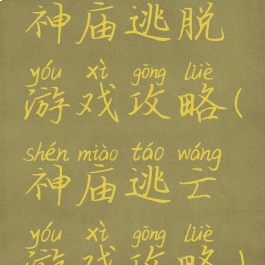 神庙逃脱
yóu xì gōng lüè
游戏攻略(
shén miào táo wáng
神庙逃亡
yóu xì gōng lüè
游戏攻略)